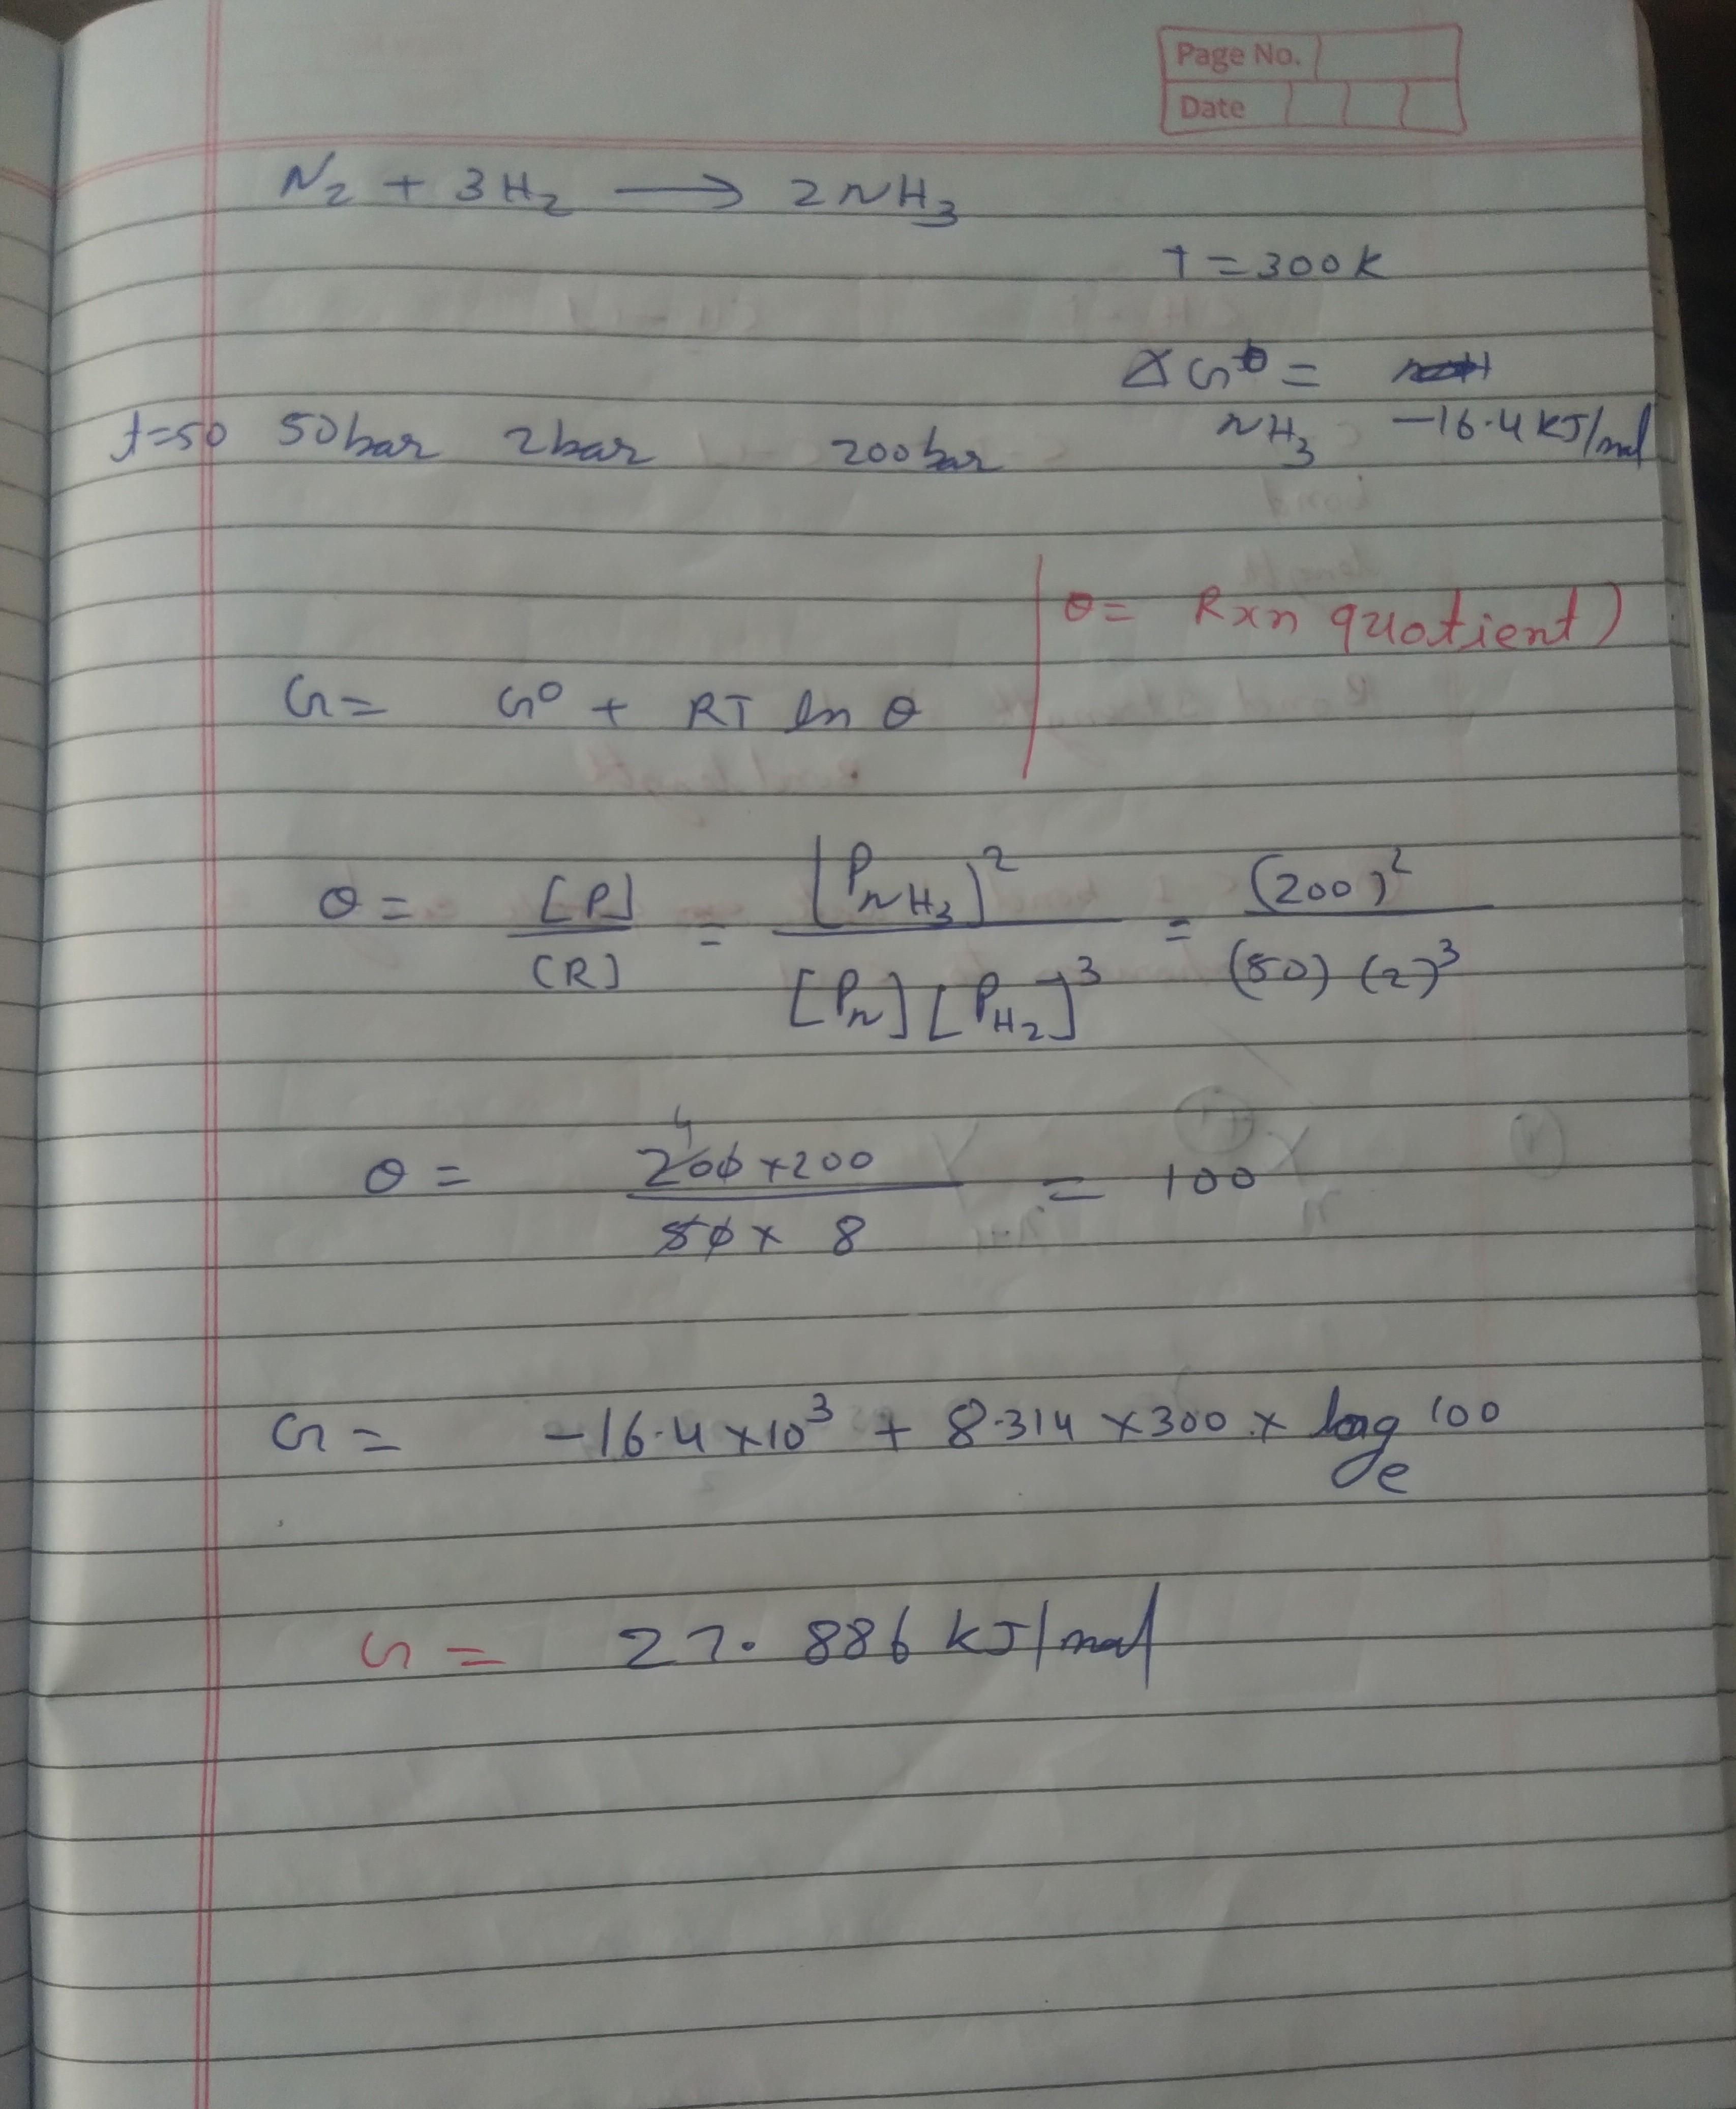 Page No.
Date
N₂ + 3H₂ ⟶ 2NH₃
T = 300K
ΔG° =
t=50 50bar 2bar 200bar NH₃ -16.4 KJ/mol
Q = Rxn quotient)
G = G° + RT ln Q
Q = [P]/[R] = [P_NH₃]²/[P_N][P_H₂]³ = (200)²/(50) (2)³
Q = 200×200/50×8 = 100
4
G = -16.4×10³ + 8.314×300×log_e 100
G = 27.886 kJ/mol